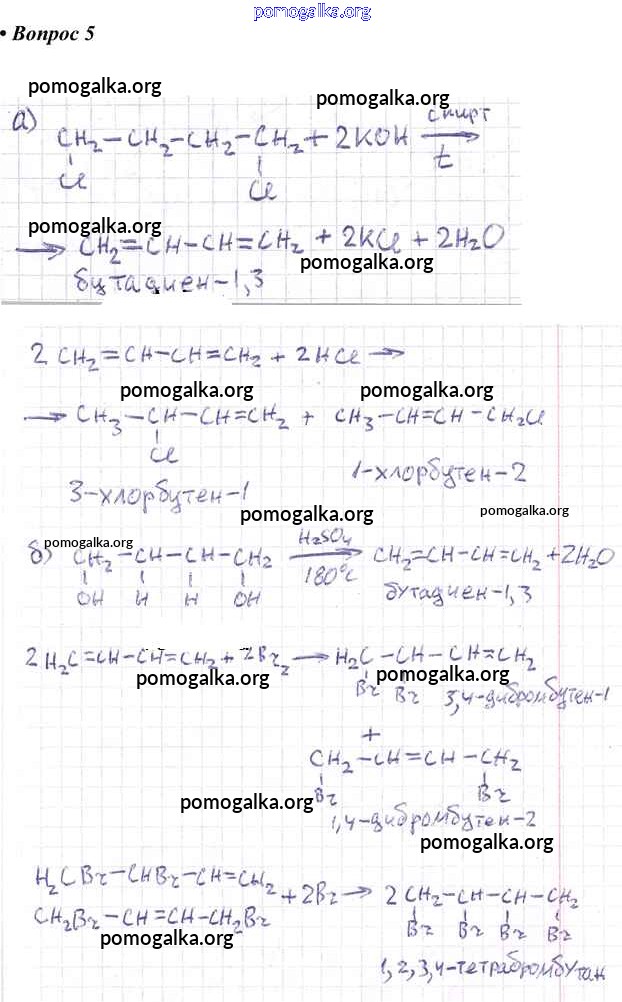 pomogalka.org
• Вопрос 5
pomogalka.org pomogalka.org
а) CH₂–CH₂–CH₂–CH₂ + 2KOH спирт t →
Cl Cl
pomogalka.org
→ CH₂=CH–CH=CH₂ + 2KCl + 2H₂O
pomogalka.org
бутадиен-1,3
2 CH₂=CH–CH=CH₂ + 2HCl →
pomogalka.org pomogalka.org
→ CH₃–CH–CH=CH₂ + CH₃–CH=CH–CH₂Cl
Cl
3-хлорбутен-1 1-хлорбутен-2
pomogalka.org pomogalka.org
pomogalka.org
б) CH₂–CH–CH–CH₂ H₂SO₄ 180°C → CH₂=CH–CH=CH₂ + 2H₂O
OH H H OH бутадиен-1,3
2 H₂C=CH–CH=CH₂ + 2Br₂ → H₂C–CH–CH=CH₂
pomogalka.org pomogalka.org
Br Br 3,4-дибромбутен-1
+
CH₂–CH=CH–CH₂
pomogalka.org
Br Br
1,4-дибромбутен-2
pomogalka.org
H₂CBr–CHBr–CH=CH₂
+ 2Br₂ → 2 CH₂–CH–CH–CH₂
CH₂Br–CH=CH–CH₂Br
Br Br Br Br
pomogalka.org
1,2,3,4-тетрабромбутан